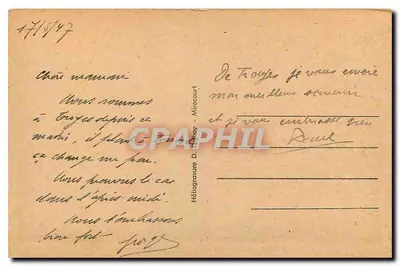 17/5/47
Chère maman
Nous sommes
à Troyes depuis ce
matin, il pleut
ça change un peu.
Nous prenons le car
dans l'après midi.
Nous t'embrassons
bien fort
Héliogravure D. Mirecourt
De Troyes je vous envoie
mon meilleur souvenir
et je vous embrasse bien
CPARAMA.COM